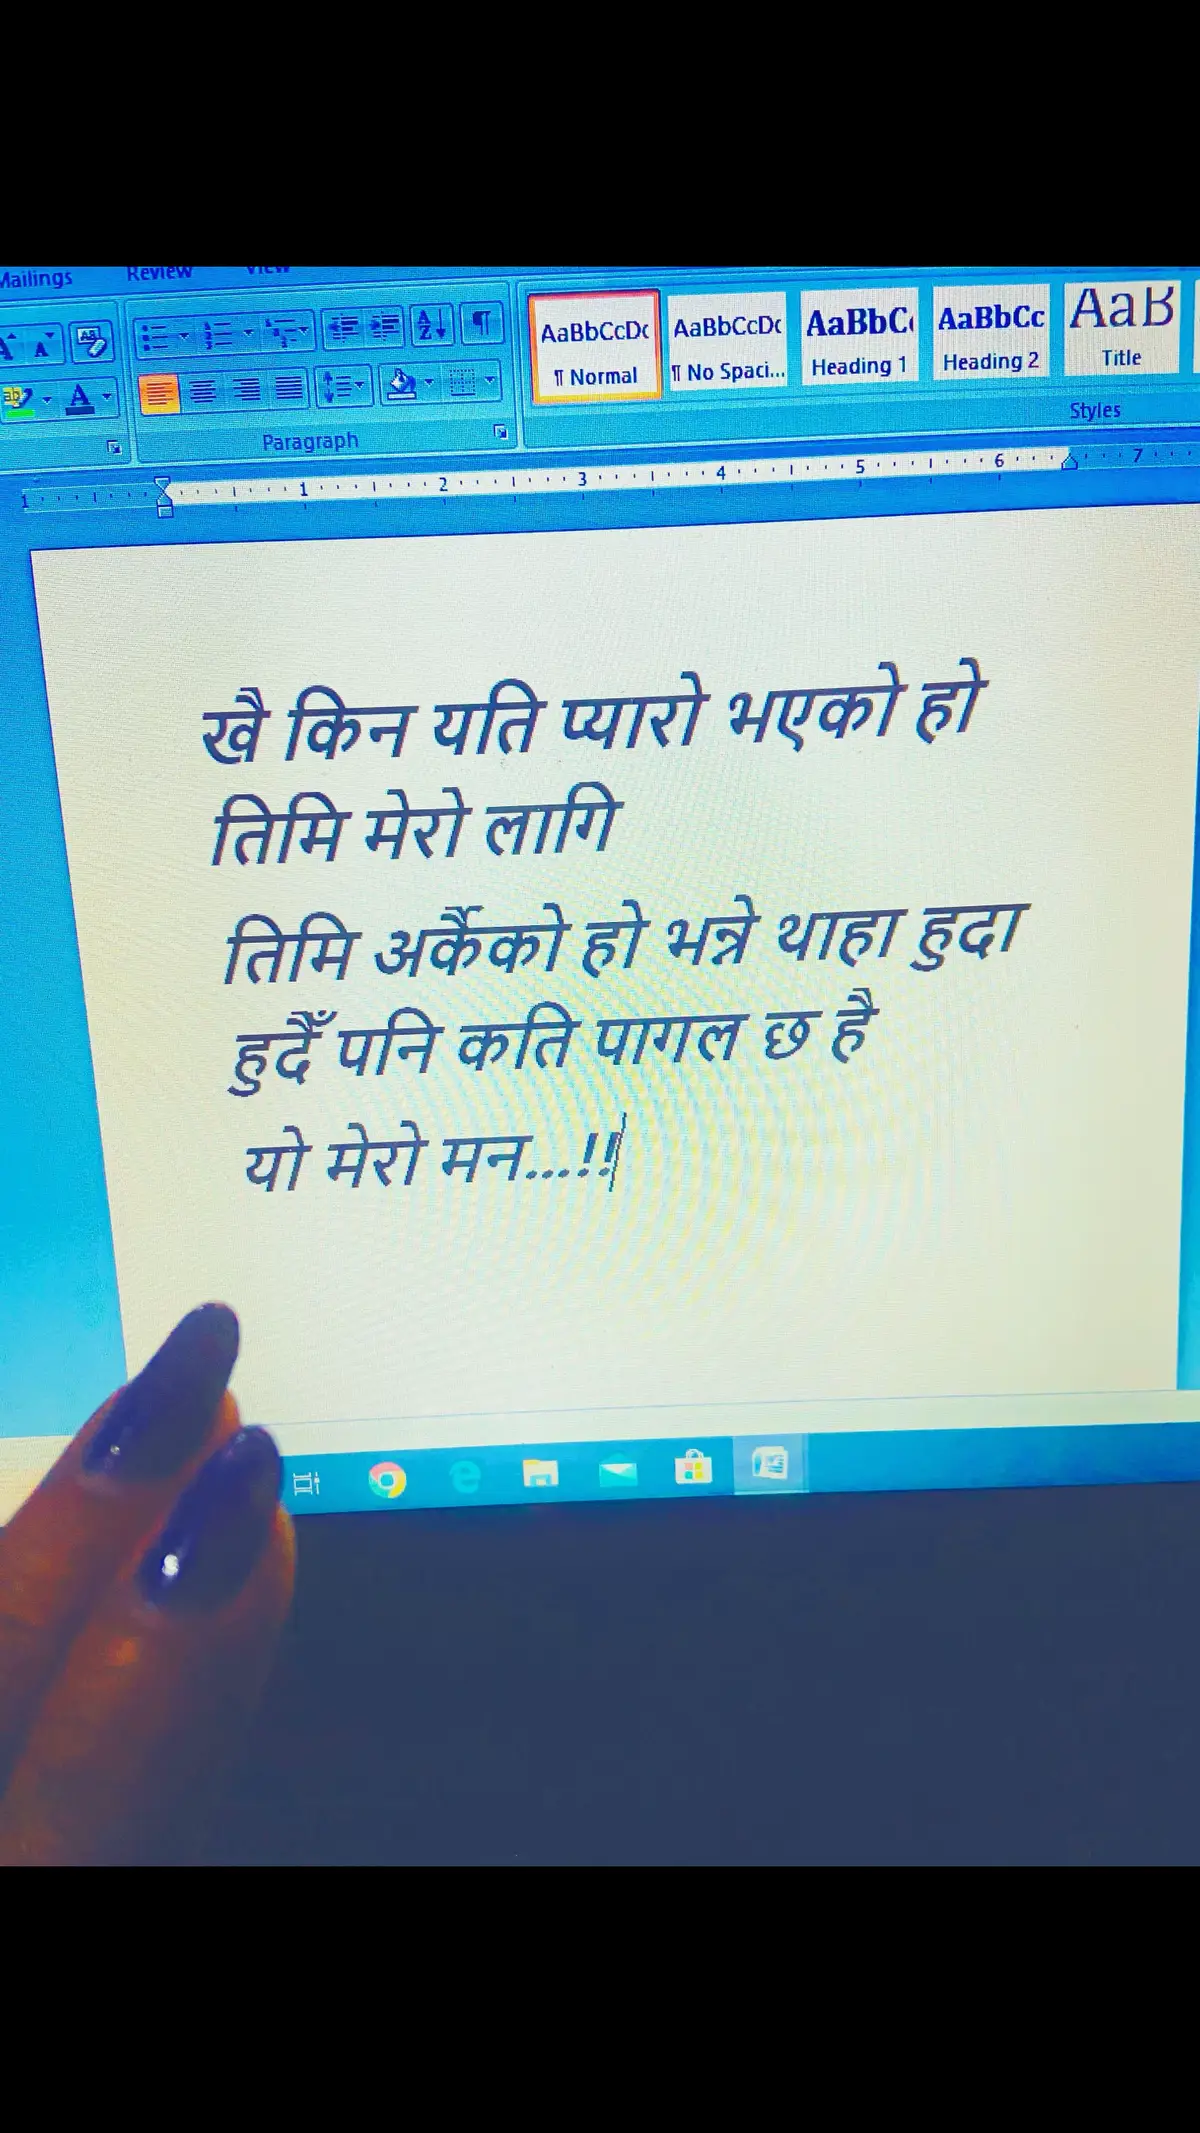 Mailings Review View
AaBbCcDc AaBbCcDc AaBbC AaBbCc AaB
¶ Normal ¶ No Spaci... Heading 1 Heading 2 Title
Paragraph Styles
1 1 2 3 4 5 6 7
खै किन यति प्यारो भएको हो
तिमि मेरो लागि
तिमि अर्कैको हो भन्ने थाहा हुदा
हुदैँ पनि कति पागल छ है
यो मेरो मन...!!